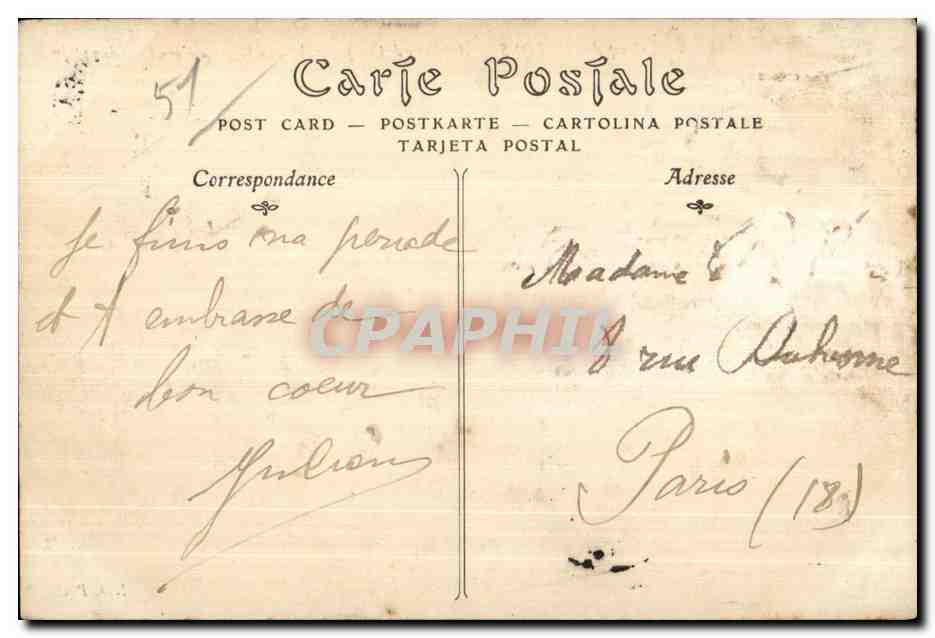 51
Carte Postale
POST CARD — POSTKARTE — CARTOLINA POSTALE
TARJETA POSTAL
Correspondance
Je finis ma periode
et t embrasse de
bon coeur
Julien
Adresse
Madame
8 rue
Paris (18)
CPAPHIL